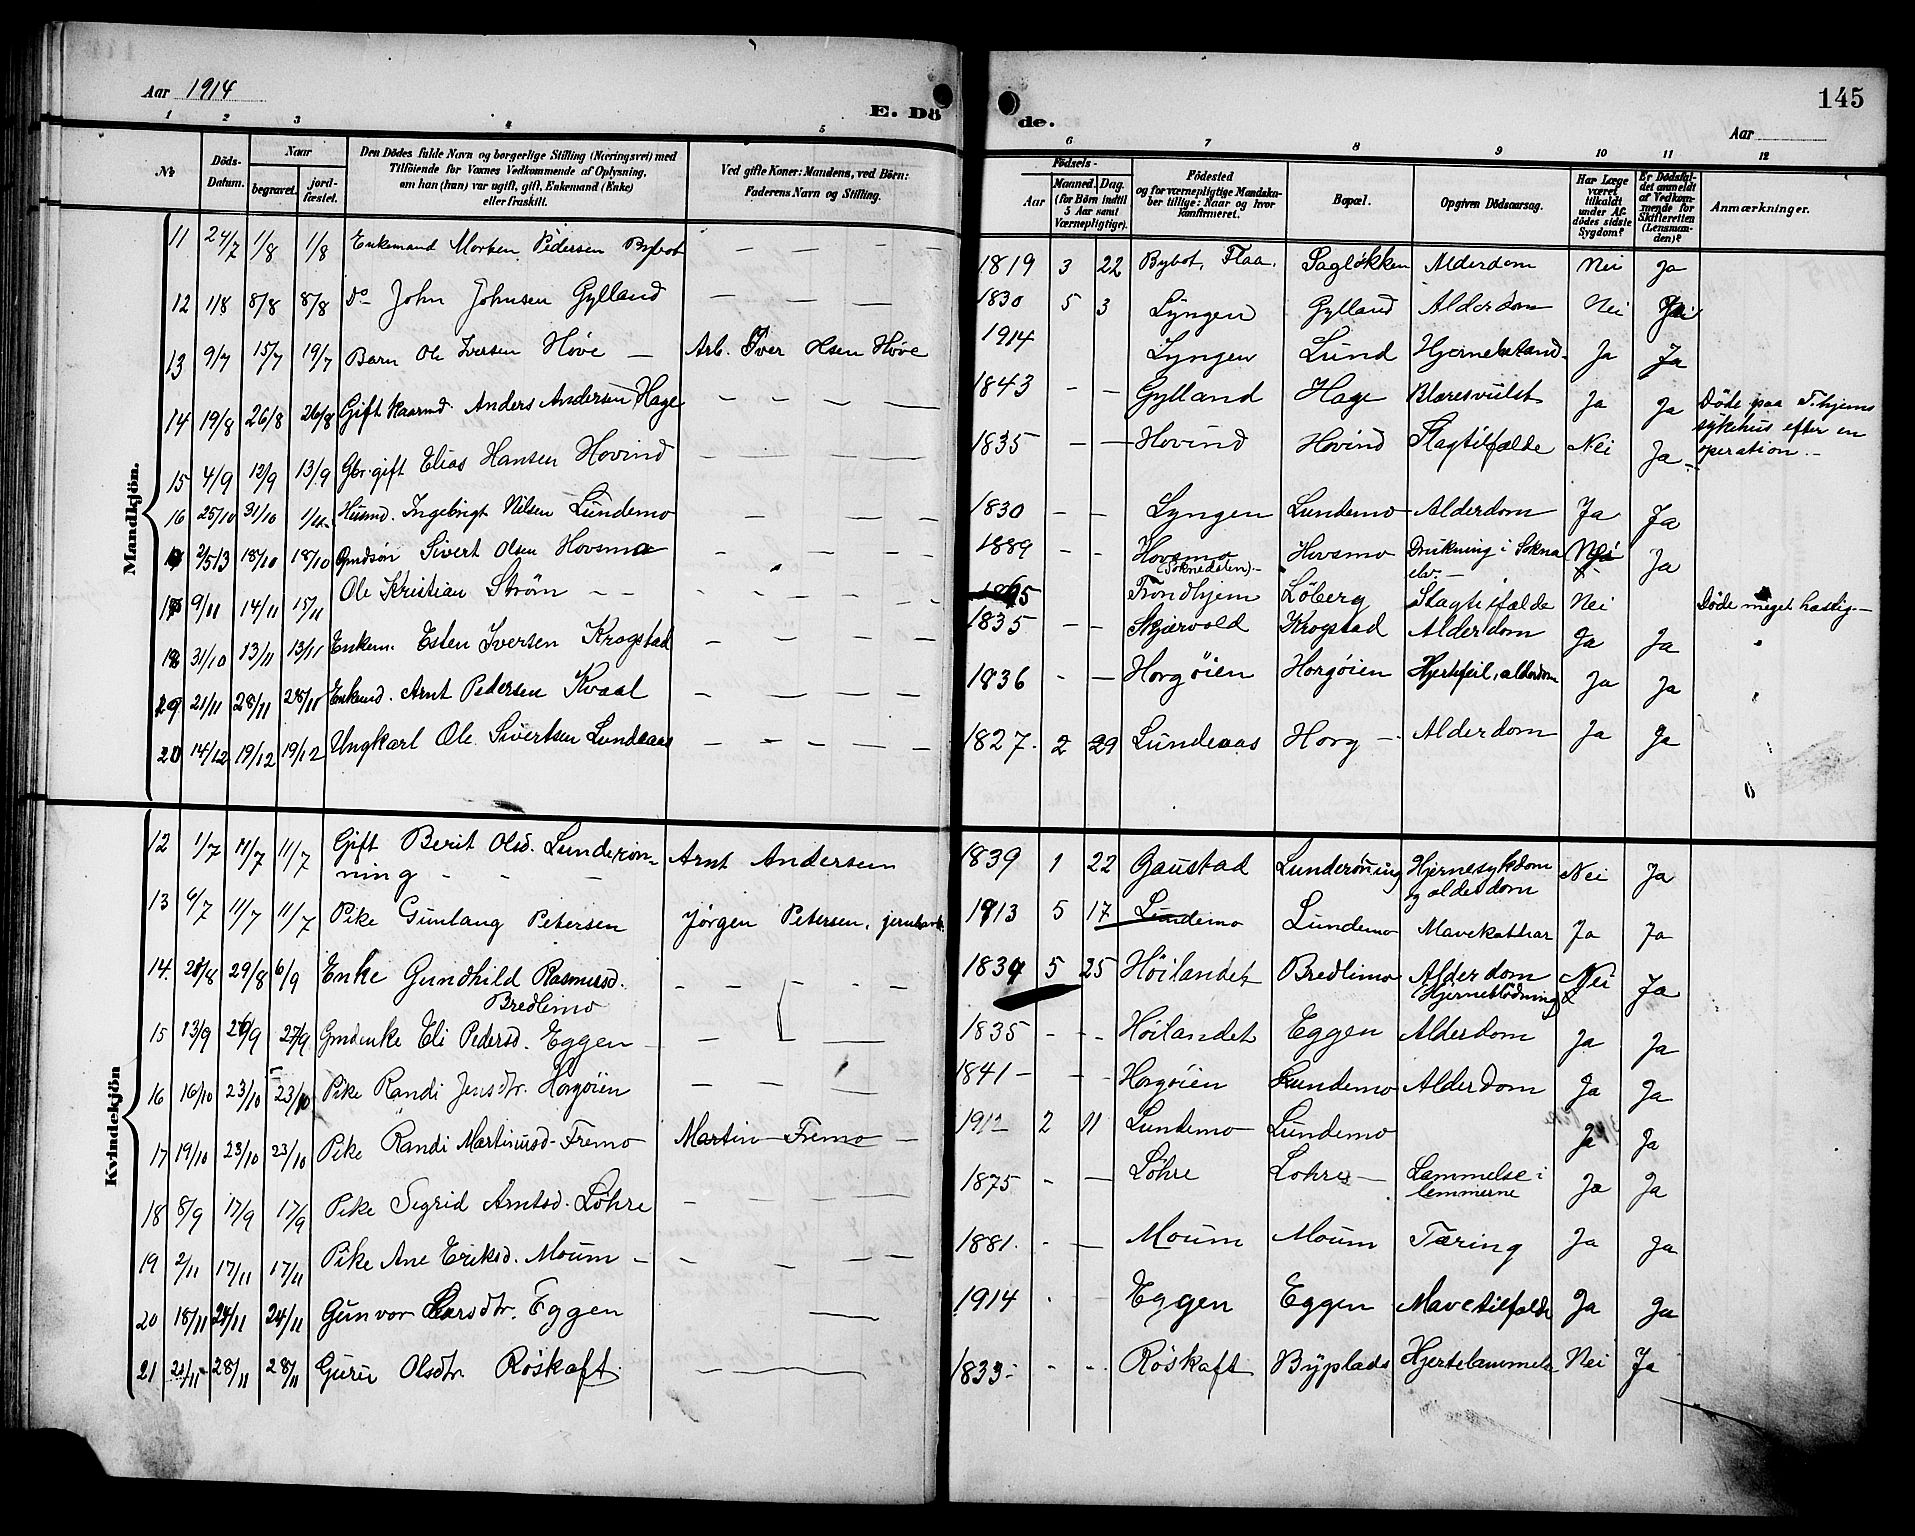 Aar 1914
E. Döde.
145
Aar
1 2 3 4 5 6 7 8 9 10 11 12
No
Döds-Datum.
Naar
begravet.
jord-fæstet.
Den Dödes fulde Navn og borgerlige Stilling (Næringsvei) med
Tilföiende for Voxnes Vedkommende af Oplysning,
om han (hun) var ugift, gift, Enkemand (Enke)
eller fraskilt.
Ved gifte Koner: Mandens, ved Börn:
Faderens Navn og Stilling.
Födsels-
Aar
Maaned. Dag.
(for Börn indtil
5 Aar samt
Værnepligtige).
Födested
og for værnepligtige Mandska-
ber tillige: Naar og hvor
konfirmeret.
Bopæl.
Opgiven Dödsaarsag.
Har Læge
været
tilkaldt
under Af-
dödes sidste
Sygdom?
Er Dödsfal-
det anmeldt
af Vedkom-
mende for
Skifteretten
(Lensman-
den)?
Anmærkninger.
Mandkjön.
11 24/7 1/8 1/8 Enkemand Morten Pedersen Bybot — — — — 1819 3 22 Bybot, Flaa. Sagløkken Alderdom Nei Ja
12 1/8 8/8 8/8 Do John Johnsen Gylland — — — — 1830 5 3 Lyngen Gylland Alderdom Nei Ja
13 9/7 15/7 19/7 Barn Ole Iversen Høve — Arb. Iver Olsen Høve 1914 Lyngen Lund Hjernebetænd. Ja Ja
14 19/8 26/8 26/8 Gift kaarmd. Anders Andersen Hage — — — — 1843 — — Gylland Hage Blæresvulst Ja Ja Døde paa T.hjems
sykehus efter en
operation. —
15 4/9 12/9 13/9 Gbr. gift Elias Hansen Hovind — — — — 1835 — — Hovind Hovind Slagtilfælde Nei Ja
16 25/10 31/10 1/11 Husmd. Ingebrigt Nilsen Lundemo — — — 1830 — — Lyngen Lundemo Alderdom Ja Ja
2/5 13 18/10 18/10 Gmdsøn Sivert Olsen Hovsmo — — — 1889 - - Hovsmo
(Soknedalen) — Hovsmo Drukning i Sokna
elv. — Nei Ja
9/11 14/11 15/11 Ole Kristian Strøm - - 1865 Trondhjem Løberg Slagtilfælde Nei Døde meget hastig. —
18 31/10 13/11 13/11 Enkem. Esten Iversen Krogstad — — — 1835 — — Skjærvold Krogstad Alderdom Ja Ja
19 21/11 28/11 28/11 Enkemd. Arnt Pedersen Kvaal — — — — 1836 - — Horgøien Horgøien Hjertefeil, alderdom Ja Ja
20 14/12 19/12 19/12 Ungkarl Ole Sivertsen Lundeaas — — — — 1827. 2 29 Lundeaas Horg — Alderdom Ja Ja
Kvindekjön
12 1/7 11/7 11/7 Gift Berit Olsd. Lunderøn-
ning - - — Arnt Andersen 1839 1 22 Gaustad Lunderønning Hjernesykdom
og alderdom Nei Ja
13 6/7 11/7 11/7 Pike Gunlaug Petersen Jørgen Petersen, jernbanearb. 1913 5 17 Lundemo Lundemo Mavekathar Ja Ja
14. 29/8 6/9 Enke Gundhild Rasmusd.
Bredlimo — — — — 1834 5 25 Høilandet Bredlimo Alderdom
Hjerneblødning Nei Ja
15 13/9 26/9 27/9 Gmdenke Eli Pedersd. Eggen — — — — 1835 - - Høilandet Eggen Alderdom Ja Ja
16 16/10 23/10 23/10 Pike Randi Jensdtr. Horgøien — — — — 1841 — — Horgøien Lundemo Alderdom Ja Ja
17 19/10 23/10 23/10 Pike Randi Martinusd. Fremo Martin Fremo — 191 2 11 Lundemo Lundemo Ja Ja
18 8/9 17/9 17/9 Pike Sigrid Arntsd. Løhre — — — — 1875 - — Løhre Lohre — Lammelse i
lemmerne Ja Ja
19 2/11 17/11 17/11 Pike Ane Eriksd. Moum — — — — 1881. - — Moum Moum Tæring Ja Ja
20 18/11 24/11 24/11 Gunvor Larsdtr. Eggen — 1914 - - Eggen Eggen Mavetilfælde Ja Ja
21 28/11 28/11 Guru Olsdtr Røskaft. — — — 1833 - - - Røskaft Byplads Hjertelammelse Nei Ja